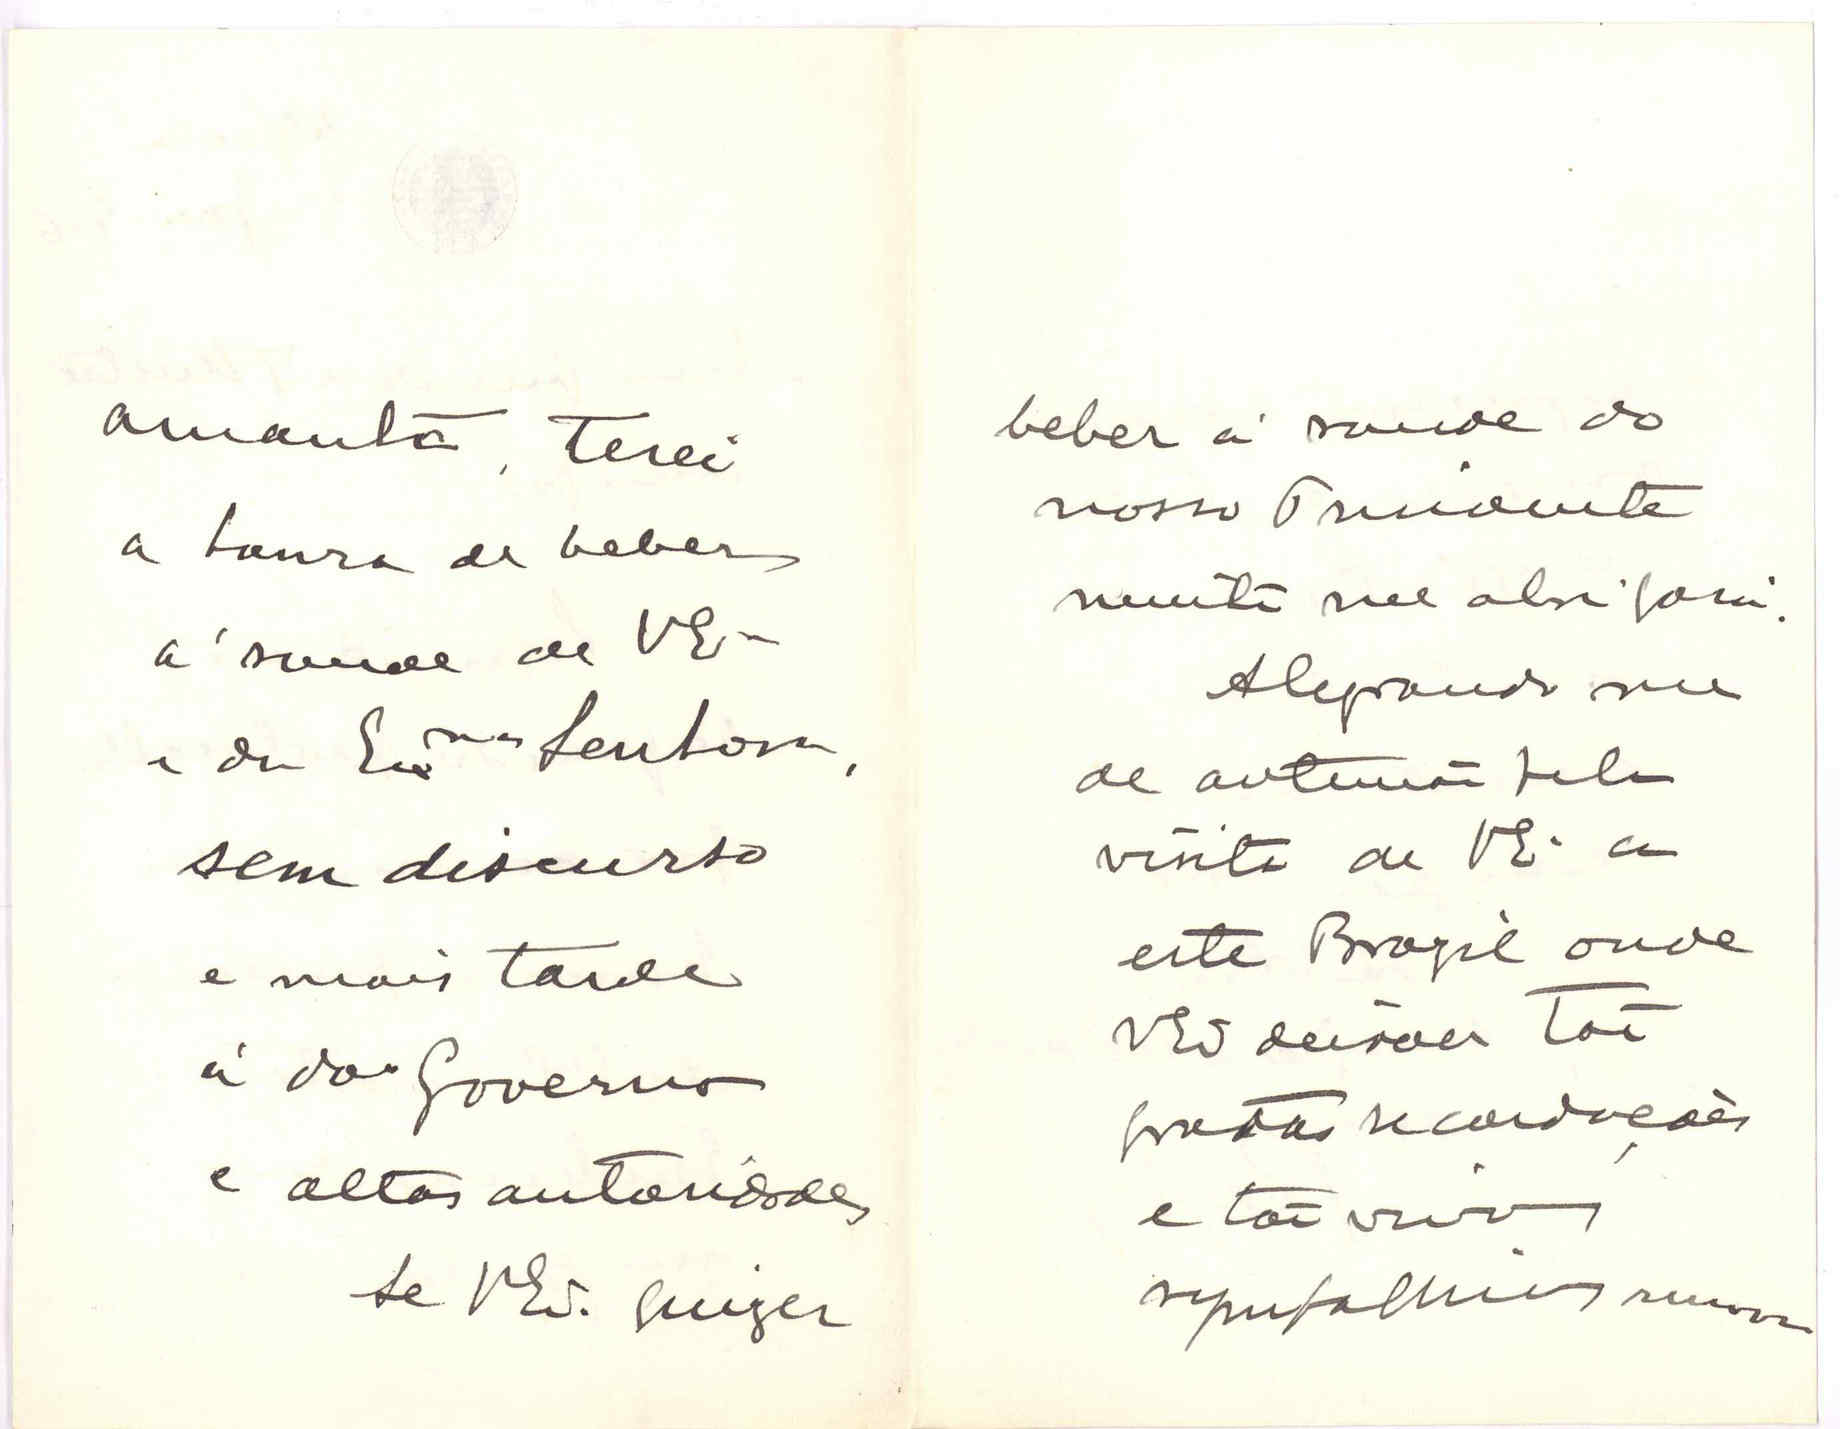 amanhã, terei
a honra de beber
á saude de VE
e da Exma Senhora,
sem discurso
e mais tarde
á do Governo
e altas autoridades
Se VEx. quizer
beber á saude do
nosso Presidente
muito me obrigará.
Alegrando me
de antemão pela
visita de VE. a
este Brazil onde
VEx deixou tão
gratas recordações
e tão vivas
sympathias renovo